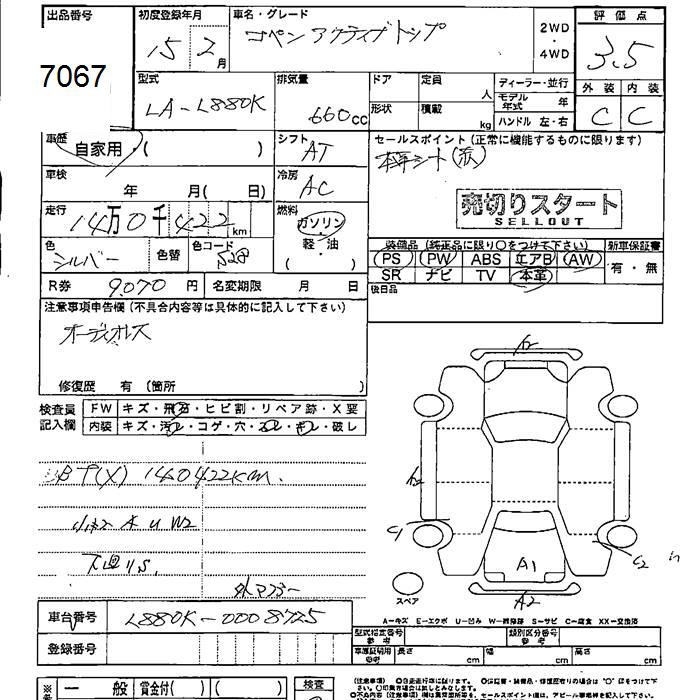 出品番号 初度登録年月 車名・グレード 2WD・4WD 評価点
7067 15 2月 コペン アクティブトップ 3.5
型式 排気量 ドア 定員 人 ディーラー・並行 外装 内装
LA-L880K 660cc 形状 積載 kg モデル年式 年 ハンドル 左・右 C C
車歴 自家用・( ) シフト AT セールスポイント(正常に機能するものに限ります)
本革シート(赤)
車検 年 月( 日) 冷房 AC
売切りスタート
SELLOUT
走行 14万0千422km 燃料 ガソリン・軽・油 ( )
色 シルバー 色替 色コード S28
装備品(純正品に限り○をつけて下さい) 新車保証書
PS PW ABS エアB AW 有・無
SR ナビ TV 本革
R券 9,070円 名変期限 月 日 後日品
注意事項申告欄(不具合内容等は具体的に記入して下さい)
オーディオレス
修復歴 有(箇所 )
検査員記入欄 FW キズ・飛石・ヒビ割・リペア跡・X要
内装 キズ・汚れ・コゲ・穴・スレ・キレ・破し
(X) 140422km.
A U W2
下廻りS.
外マフラー
A2
A2
C1
C2
A1
A2
スペア
A-キズ E-エクボ U-凹み W-補修跡 S-サビ C-腐食 XX-交換済
車台番号 L880K-0008725
登録番号
型式指定番号 参考 類別区分番号 参考
車庫証明用 参考 長さ cm 幅 cm 高さ cm
※ 一般 賞金付( )( ) 検査